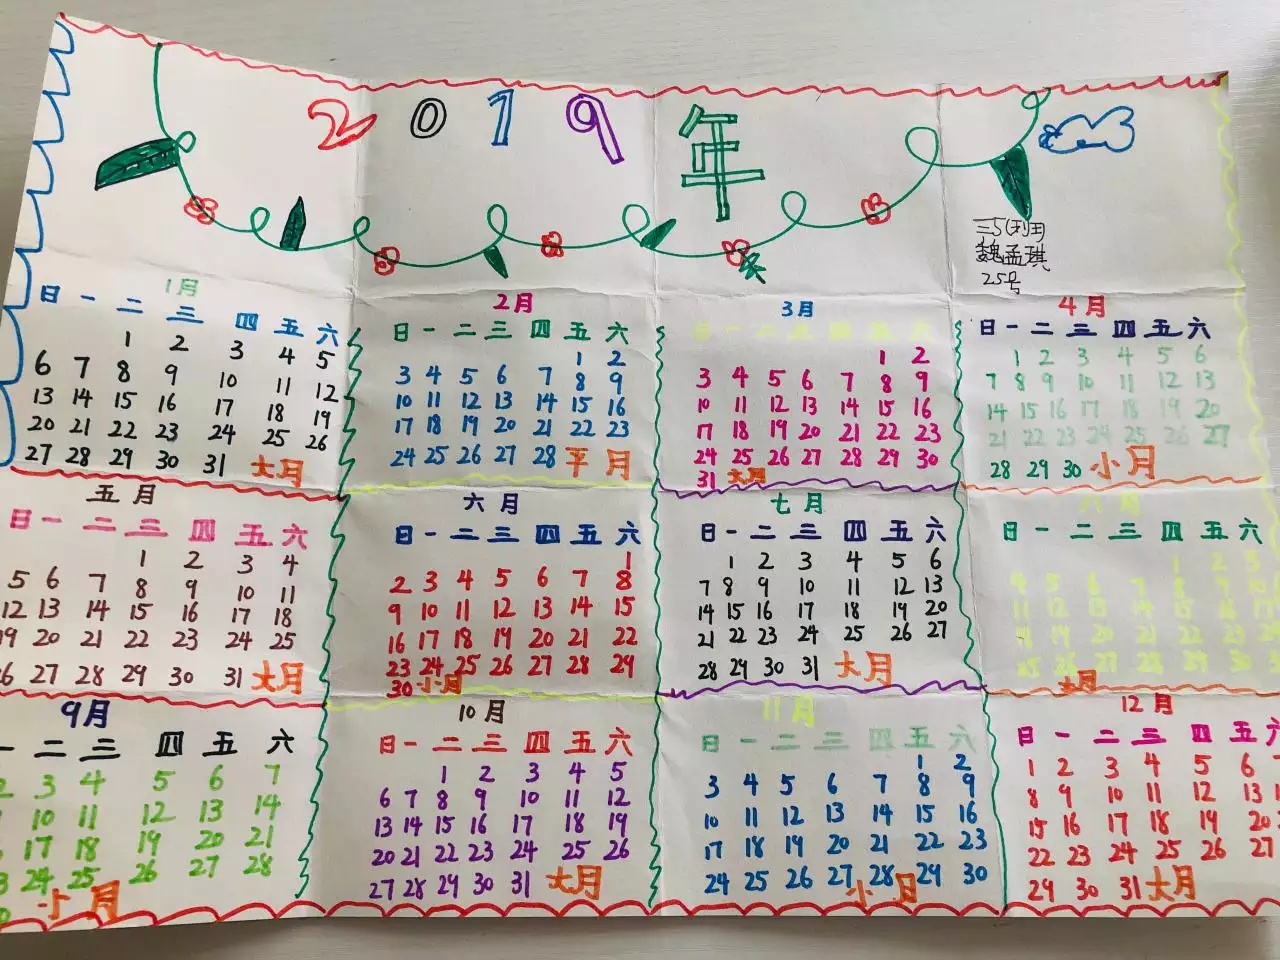 2019年
三5(列王)
魏孟琪
25号
1月
日 一 二 三 四 五 六
1 2 3 4 5
6 7 8 9 10 11 12
13 14 15 16 17 18 19
20 21 22 23 24 25 26
27 28 29 30 31 大月
2月
日 一 二 三 四 五 六
1 2
3 4 5 6 7 8 9
10 11 12 13 14 15 16
17 18 19 20 21 22 23
24 25 26 27 28 平月
3月
1 2
3 4 5 6 7 8 9
10 11 12 13 14 15 16
17 18 19 20 21 22 23
24 25 26 27 28 29 30
31 大月
4月
日 一 二 三 四 五 六
1 2 3 4 5 6
7 8 9 10 11 12 13
14 15 16 17 18 19 20
21 22 23 24 25 26 27
28 29 30 小月
五月
日 一 二 三 四 五 六
1 2 3 4
5 6 7 8 9 10 11
12 13 14 15 16 17 18
19 20 21 22 23 24 25
26 27 28 29 30 31 大月
六月
日 一 二 三 四 五 六
1
2 3 4 5 6 7 8
9 10 11 12 13 14 15
16 17 18 19 20 21 22
23 24 25 26 27 28 29
30 小月
七月
日 一 二 三 四 五 六
1 2 3 4 5 6
7 8 9 10 11 12 13
14 15 16 17 18 19 20
21 22 23 24 25 26 27
28 29 30 31 大月
八月
日 一 二 三 四 五 六
1 2 3
4 5 6 7 8 9 10
11 12 13 14 15 16 17
19 20 21 22 23
25 26 27 28 29 30
大月
9月
一 二 三 四 五 六
2 3 4 5 6 7
10 11 12 13 14
17 18 19 20 21
24 25 26 27 28
小月
10月
日 一 二 三 四 五 六
1 2 3 4 5
6 7 8 9 10 11 12
13 14 15 16 17 18 19
20 21 22 23 24 25 26
27 28 29 30 31 大月
11月
日 一 二 三 四 五 六
1 2
3 4 5 6 7 8 9
10 11 12 13 14 15 16
17 18 19 20 21 22 23
24 25 26 27 28 29 30
小月
12月
日 一 二 三 四 五 六
1 2 3 4 5 6
8 9 10 11 12 13
15 16 17 18 19 20
22 23 24 25 26 27
29 30 31 大月